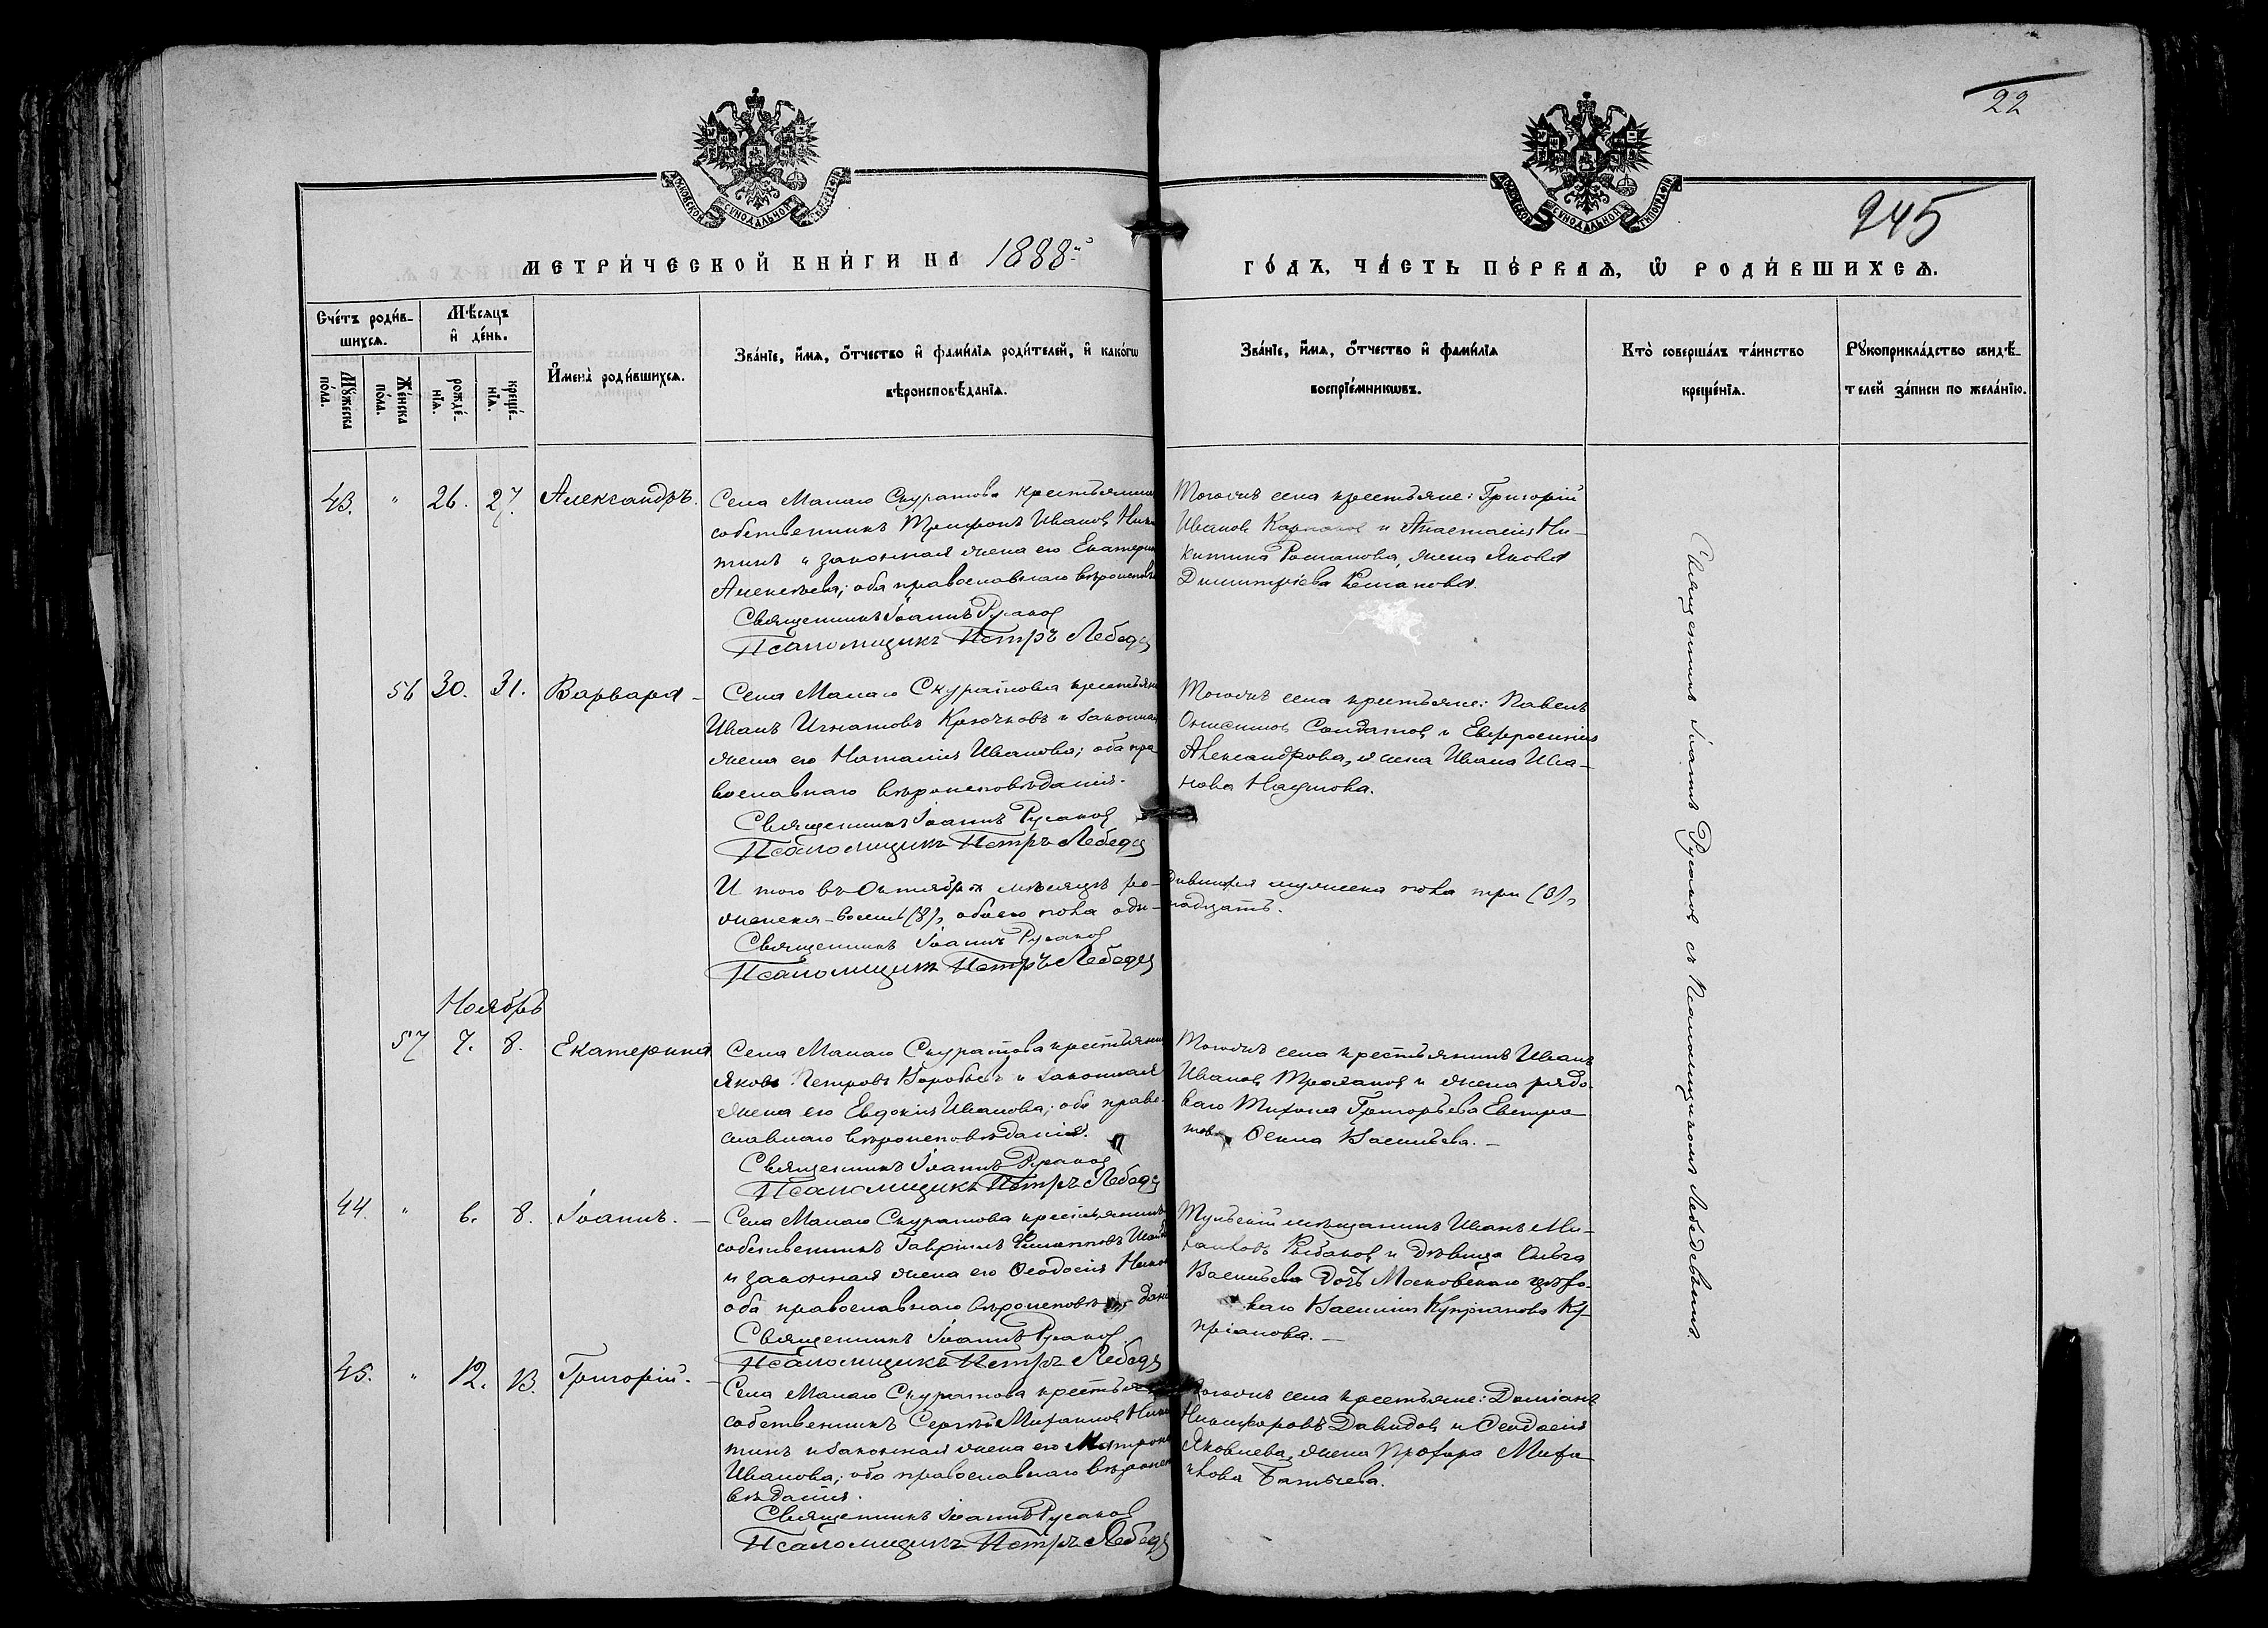 22
245
МОСКОВСКОЙ СѴНОДАЛЬНОЙ ТИПОГРАФІИ
МОСКОВСКОЙ СѴНОДАЛЬНОЙ ТИПОГРАФІИ
МЕТРИ́ЧЕСКОЙ КНИ́ГИ НА 1888й
ГО́ДЪ, ЧА́СТЬ ПЕ́РВАѦ, Ѡ҆ РОДИ́ВШИХСѦ.
Сче́тъ роди́в-
шихсѧ.
Мѹ́жеска по́ла.
Же́нска по́ла.
Мѣ́сѧцъ
и҆ де́нь.
рожде́-
нїѧ.
креще́-
нїѧ.
И҆мена̀ роди́вшихсѧ.
Зва́нїе, и҆́мѧ, ѻ҆́тчество и҆ фами́лїѧ роди́телей, и҆ како́гѡ
вѣроисповѣ́данїѧ.
Зва́нїе, и҆́мѧ, ѻ҆́тчество и҆ фами́лїѧ
воспрїе́мникѡвъ.
Кто̀ соверша́лъ та́инство
креще́нїѧ.
Рѹкоприкла́дство свидѣ́-
телей за́писи по жела́нїю.
43. " 26. 27. Александръ.
Села Малаго Скуратова крестьянинъ
собственникъ Трифонъ Ивановъ Ники
тинъ и законная жена его Екатерин
Алексѣева; оба православнаго вѣроисповѣ
Священникъ Іоаннъ Русаковъ
Псаломщикъ Петръ Лебедев
Тогожъ села крестьяне: Григорій
Ивановъ и Анастасія Ни-
китина Романова, жена Якова
Димитріева Романова.
56 30. 31. Варвара –
Села Малаго Скуратова крестьяни
Иванъ Игнатовъ Крючковъ и законная
жена его Наталія Иванова; оба пра
вославнаго вѣроисповѣданія.
Священникъ Іоаннъ Русаковъ
Псаломщикъ Петръ Лебедев
Тогожъ села крестьяне: Павелъ
Онисимовъ Солдатовъ и Евфросинія
Александрова, жена Ивана Ива-
нова Наумова.
И того въ Октябрѣ мѣсяцѣ ро-дившихся мужеска пола три (3),
женска – восемь (8), обоего пола оди-надцать.
Священникъ Іоаннъ Русаковъ
Псаломщикъ Петръ Лебедев
Ноябрь
57 7. 8. Екатерина
Села Малаго Скуратова крестьянин
Яковъ Петровъ Воробьевъ и законная
жена его Евдокія Иванова; оба право-
славнаго вѣроисповѣданія.
Священникъ Іоаннъ Русаковъ
Псаломщикъ Петръ Лебедев
Тогожъ села крестьянинъ Иванъ
Ивановъ и жена рядо-
ваго Тихона Григорьева Евстра-
това Васильева. –
44. " 6. 8. Іоаннъ. –
Села Малаго Скуратова крестьянинъ
собственникъ Гавріилъ Филипповъ
и законная жена его Ѳеодосія
оба православнаго вѣроисповѣдані
Священникъ Іоаннъ Русаковъ
Псаломщикъ Петръ Лебедев
Тульскій мѣщанинъ Иванъ Ми-
хайловъ Рыбаковъ и дѣвица Ольга
Васильева дочь Московскаго цехо-
ваго Василія Купріанова Ку-
пріанова. –
45. " 12. 13. Григорій. –
Села Малаго Скуратова крестья
собственникъ Сергѣй Михаиловъ Ники
тинъ и законная жена его Матрона
Иванова; оба православнаго вѣроиспо
вѣданія.
Священникъ Іоаннъ Русаковъ
Псаломщикъ Петръ Лебедев
Тогожъ села крестьяне: Даміанъ
Никифоровъ Давидовъ и Ѳеодосія
Яковлева, жена Прохора Миха-
Священникъ Іоаннъ Русаковъ съ Псаломщикомъ Лебедевымъ.